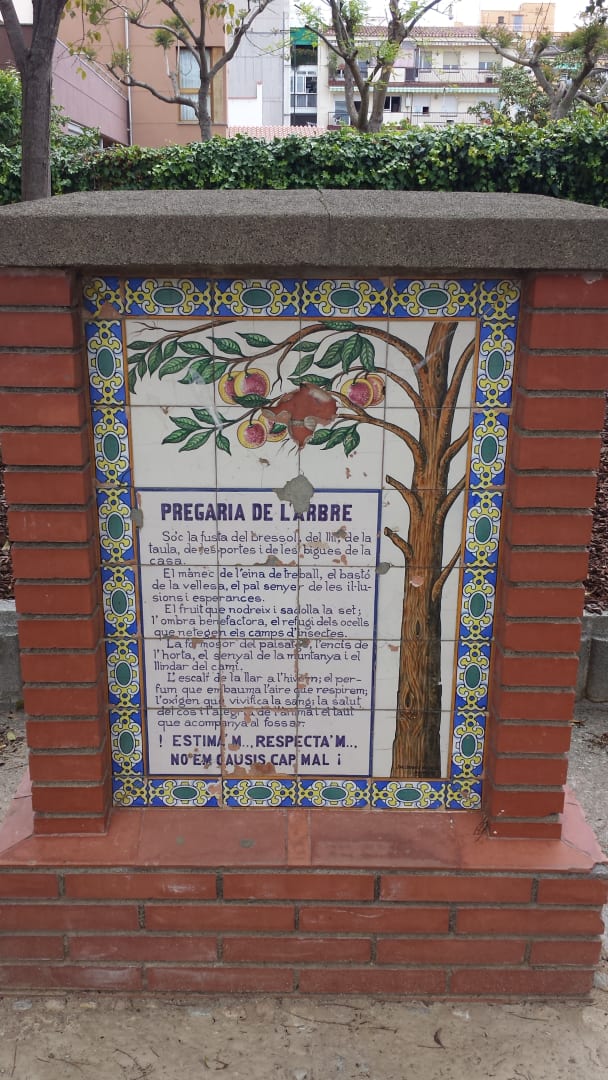 PREGARIA DE L'ARBRE
Sóc la fusta del bressol, del llit, de la
taula, de les portes i de les bigues de la
casa.
El mànec de l'eina de treball, el bastó
de la vellesa, el pal senyer de les il·lu-
sions i esperances.
El fruit que nodreix i sadolla la set;
l'ombra benefactora, el refugi dels ocells
que netegen els camps d'insectes.
La formosor del paisatge, l'encís de
l'horta, el senyal de la muntanya i el
llindar del camí.
L'escalf de la llar a l'hivern; el per-
fum que embauma l'aire que respirem;
l'oxigen que vivifica la sang; la salut
del cos i l'alegria de l'ànima i el taüt
que acompanya al fossar.
! ESTIMA'M..., RESPECTA'M...,
NO EM CAUSIS CAP MAL ¡